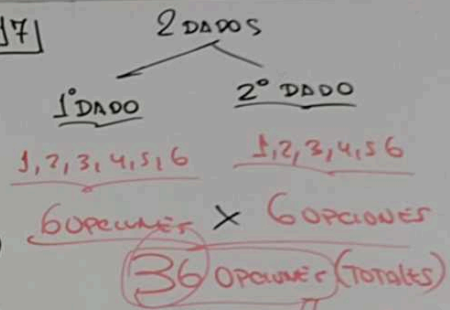 17
2 DADOS
1º DADO 2º DADO
1,2,3,4,5,6 1,2,3,4,5 6
6 opciones X 6 opciones
36 opciones (TOTALES)